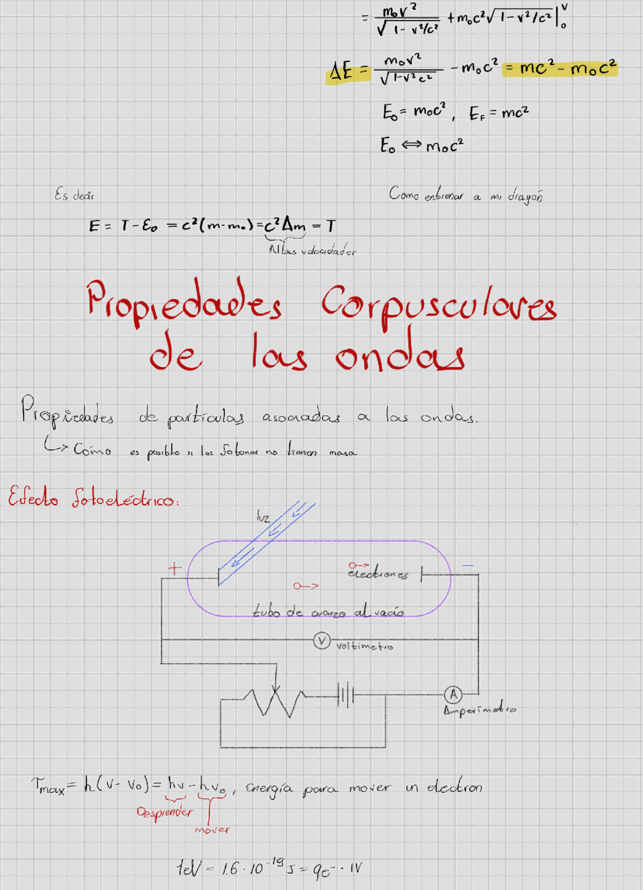 = m₀v² / √(1 - v²/c²) + m₀c² √(1 - v²/c²) |₀ᵛ
ΔE = m₀v² / √(1-v²c²) - m₀c² = mc² - m₀c²
E₀ = m₀c² , E_F = mc²
E₀ ⇔ m₀c²
Es decir
Como entrenar a mi dragón
E = T - E₀ = c²(m-m₀) = c²Δm = T
Altas velocidades
Propiedades Corpusculares
de las ondas
Propiedades de partículas asociadas a las ondas.
↳ Cómo es posible si los fotones no tienen masa
Efecto fotoeléctrico:
luz
+
electrones
-
tubo de cuarzo al vacío
V voltímetro
A
Amperímetro
T_max = h(ν - ν₀) = hν - hν₀, energía para mover un electron
Desprender
mover
1eV = 1.6 · 10⁻¹⁹ J = q_e⁻ · 1V